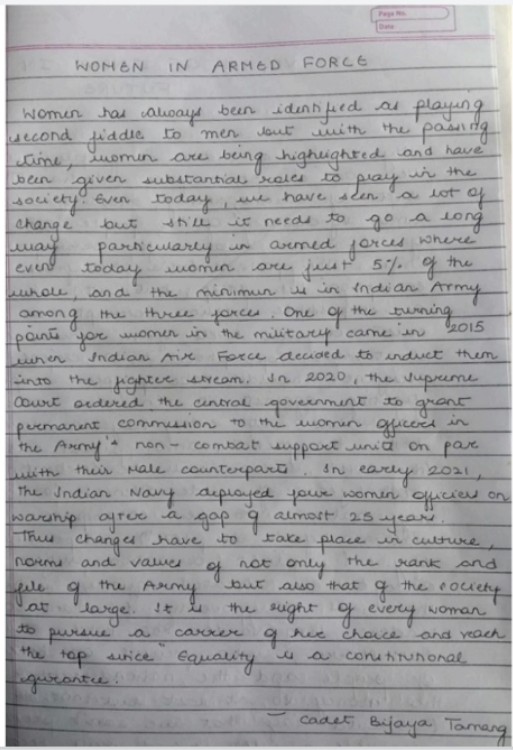 Page No.
Date
WOMEN IN ARMED FORCE
Women has always been identified as playing
second fiddle to men but with the passing
time, women are being highlighted and have
been given substantial roles to play in the
society. Even today, we have seen a lot of
change but still it needs to go a long
way particularly in armed forces where
even today women are just 5% of the
whole, and the minimum is in Indian Army
among the three forces. One of the turning
points for women in the military came in 2015
when Indian Air Force decided to induct them
into the fighter stream. In 2020, the Supreme
Court ordered the central government to grant
permanent commission to the women officers in
the Army's non-combat support units on par
with their Male counterparts. In early 2021,
the Indian Navy deployed four women officers on
warship after a gap of almost 25 years.
Thus changes have to take place in culture,
norms and values of not only the rank and
file of the Army but also that of the society
at large. It is the right of every woman
to pursue a career of her choice and reach
the top since "Equality is a constitutional
gurantee.
- Cadet Bijaya Tamang